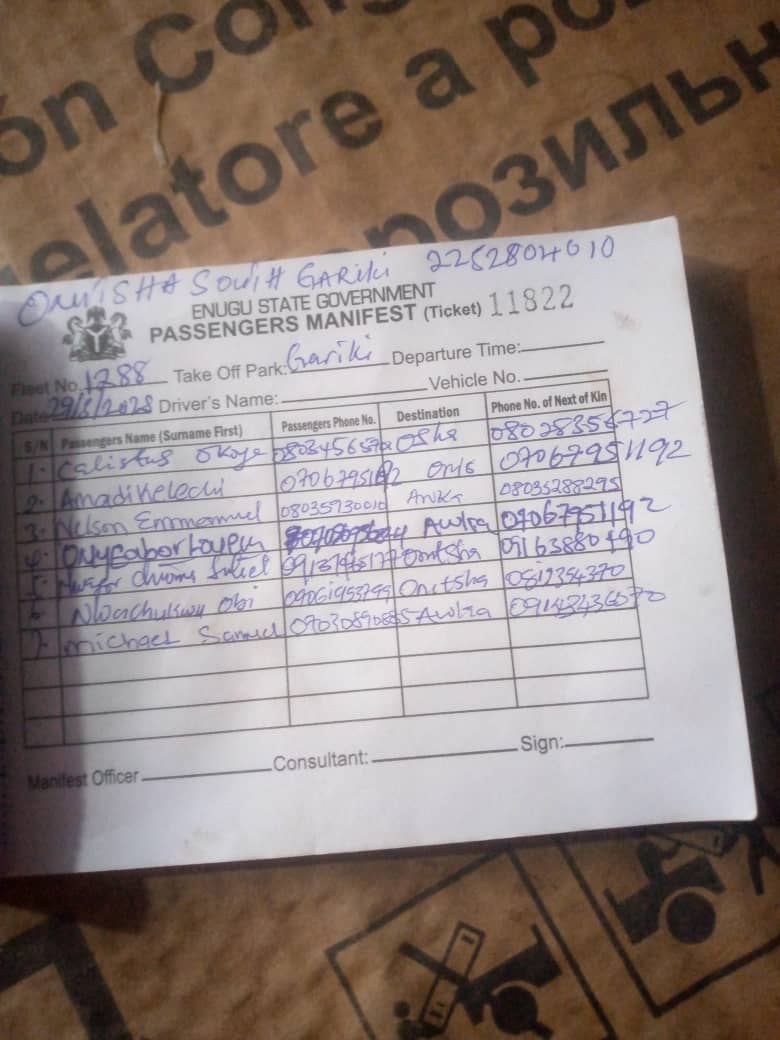 ón Cong
elatore a po
розильн
ONITSHA South GARIKI 2252804010
ENUGU STATE GOVERNMENT
PASSENGERS MANIFEST (Ticket) 11822
Fleet No. 1288 Take Off Park: Gariki Departure Time:
Date Driver's Name: Vehicle No.
S/N Passengers Name (Surname First) Passengers Phone No. Destination Phone No. of Next of Kin
1. Calistus Okoye Osha 08028356727
2. Amadi Kelechi Onis 07067951192
3. Nelson Emmanuel 08035730010 Awka 08035288295
4. Awka 07067951192
5. Onitsha 09163880490
6. Nwachukwu Obi 09061953799 Onitsha 0812354370
7. Michael Samuel 07030890885 Awka
Manifest Officer Consultant: Sign: